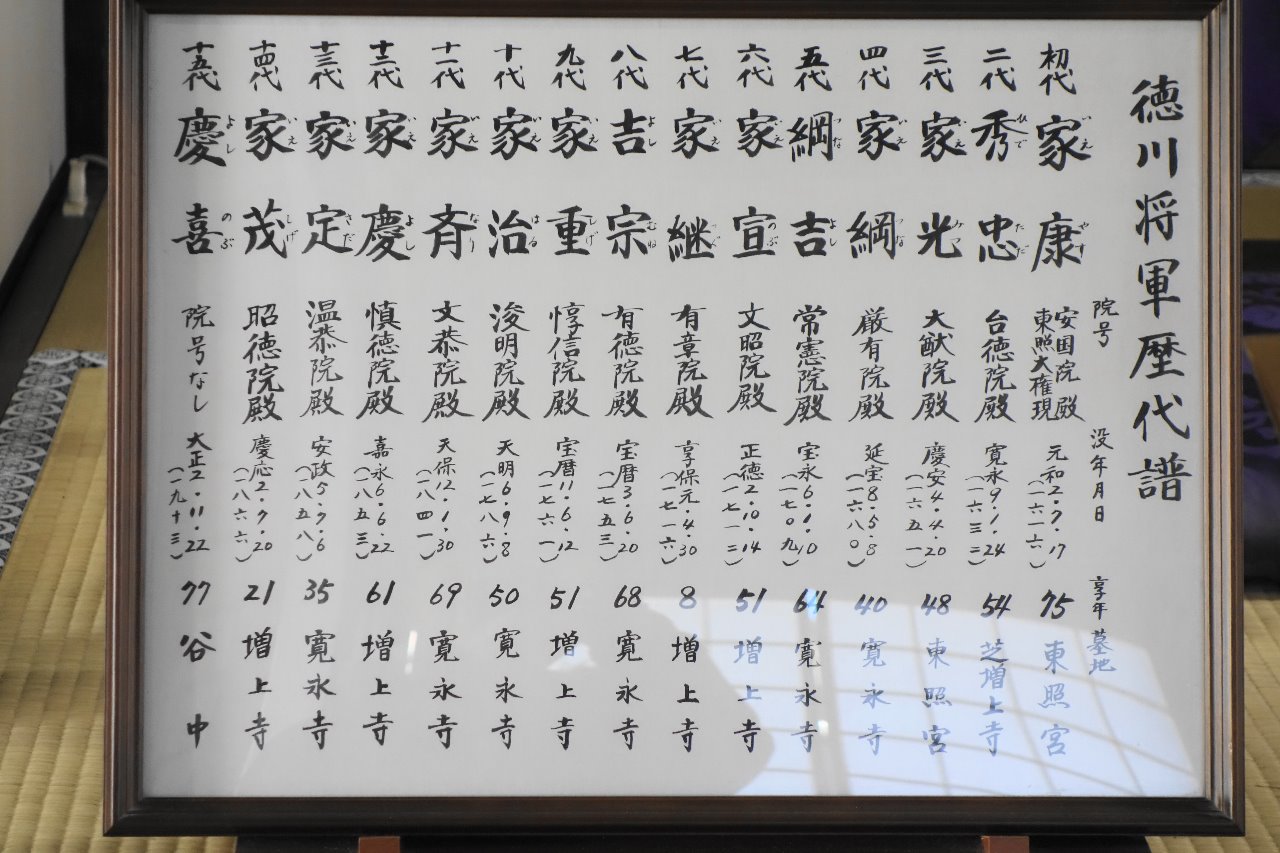 徳川将軍歴代譜
院号 没年月日 享年 墓地
初代 家康 いえやす 安国院殿 東照大権現 元和2・7・17(一六一六) 75 東照宮
二代 秀忠 ひでただ 台徳院殿 寛永9・1・24(一六三二) 54 芝増上寺
三代 家光 いえみつ 大猷院殿 慶安4・4・20(一六五一) 48 東照宮
四代 家綱 いえつな 厳有院殿 延宝8・5・8(一六八〇) 40 寛永寺
五代 綱吉 つなよし 常憲院殿 宝永6・1・10(一七〇九) 64 寛永寺
六代 家宣 いえのぶ 文昭院殿 正徳2・10・14(一七一二) 51 増上寺
七代 家継 いえつぐ 有章院殿 享保元・4・30(一七一六) 8 増上寺
八代 吉宗 よしむね 有徳院殿 宝暦3・6・20(一七五三) 68 寛永寺
九代 家重 いえしげ 惇信院殿 宝暦11・6・12(一七六一) 51 増上寺
十代 家治 いえはる 浚明院殿 天明6・9・8(一七八六) 50 寛永寺
十一代 家斉 いえなり 文恭院殿 天保12・1・30(一八四一) 69 寛永寺
十二代 家慶 いえよし 慎徳院殿 嘉永6・6・22(一八五三) 61 増上寺
十三代 家定 いえさだ 温恭院殿 安政5・7・6(一八五八) 35 寛永寺
十四代 家茂 いえしげ 昭徳院殿 慶応2・7・20(一八六六) 21 増上寺
十五代 慶喜 よしのぶ 院号なし 大正2・11・22(一九十三) 77 谷中